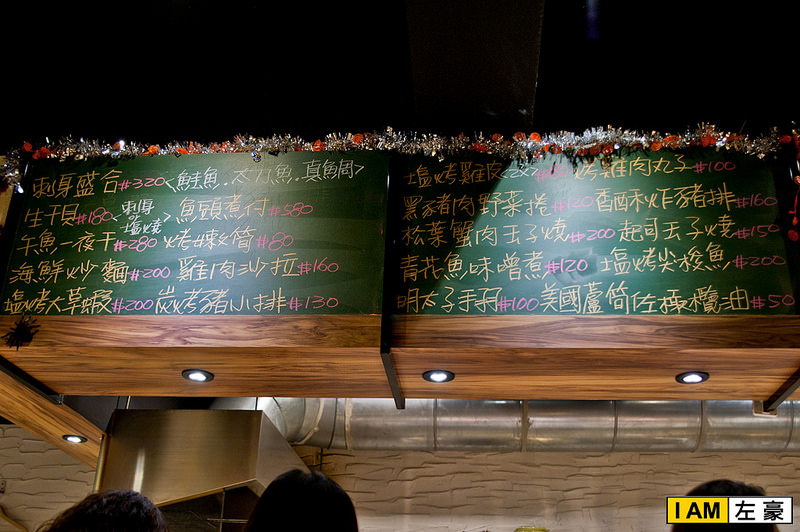 刺身盛合#320<鮭魚.太刀魚.真鯛>
生干貝#180<刺身or塩燒> 魚頭煮付#580
午魚一夜干#280 烤嫩筍#80
海鮮炒麵#200 雞肉沙拉#160
塩烤大草蝦#200 炭烤豬小排#130
塩烤雞皮 烤雞肉丸子#100
黑豬肉野菜捲#120 香酥炸豬排#160
松葉蟹肉玉子燒#200 起司玉子燒#150
青花魚味噌煮#120 塩烤尖梭魚#200
明太子手羽#100 美國蘆筍佐橄欖油#50
I AM 左豪